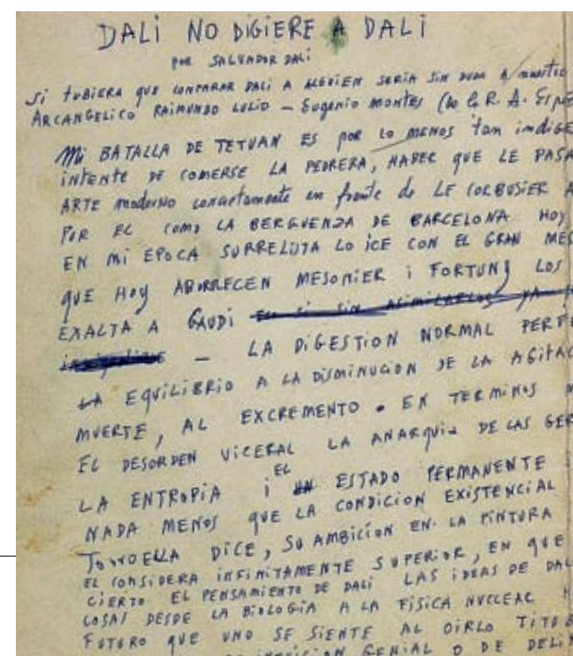 DALI NO DIGIERE A DALI
POR SALVADOR DALI
Si TUBIERA QUE COMPARAR DALI A ALGUIEN SERIA SIN DUDA A nuestro
ARCANGELICO RAIMUNDO LULIO – Eugenio Montes (de la R. A. Esp
Mi BATALLA DE TETUAN ES POR LO MENOS tan indige
INTENTE DE COMERSE LA PEDRERA, HABER QUE LE PASA
ARTE moderno concretamente en frente de LE CORBUSIER A
POR EL COMO LA BERGUENZA DE BARCELONA HOY
EN Mi EPOCA SURRELISTA LO ICE CON EL GRAN MES
QUE HOY ABORRECEN MESONIER i FORTUNY LOS
EXALTA A GAUDI
– LA DIGESTION NORMAL PERFE
LA EQUILIBRIO A LA DISMINUCION DE LA AGITAC
MUERTE, AL EXCREMENTO . EN TERMINOS
EL DESORDEN VICERAL LA ANARQUIA DE LAS GER
LA ENTROPIA i EL ESTADO PERMANENTE
NADA MENOS QUE LA CONDICION EXISTENCIAL
TORROELLA DICE, SU AMBICION EN LA PINTURA
EL CONSIDERA INFINITAMENTE SUPERIOR, EN QUE
CIERTO EL PENSAMIENTO DE DALI LAS IDEAS DE DAL
COSAS DESDE LA BIOLOGIA A LA FISICA NUCLEAR
FUTURO QUE UNO SE SIENTE AL OIRLO TITUB
GENIAL O DE DELI